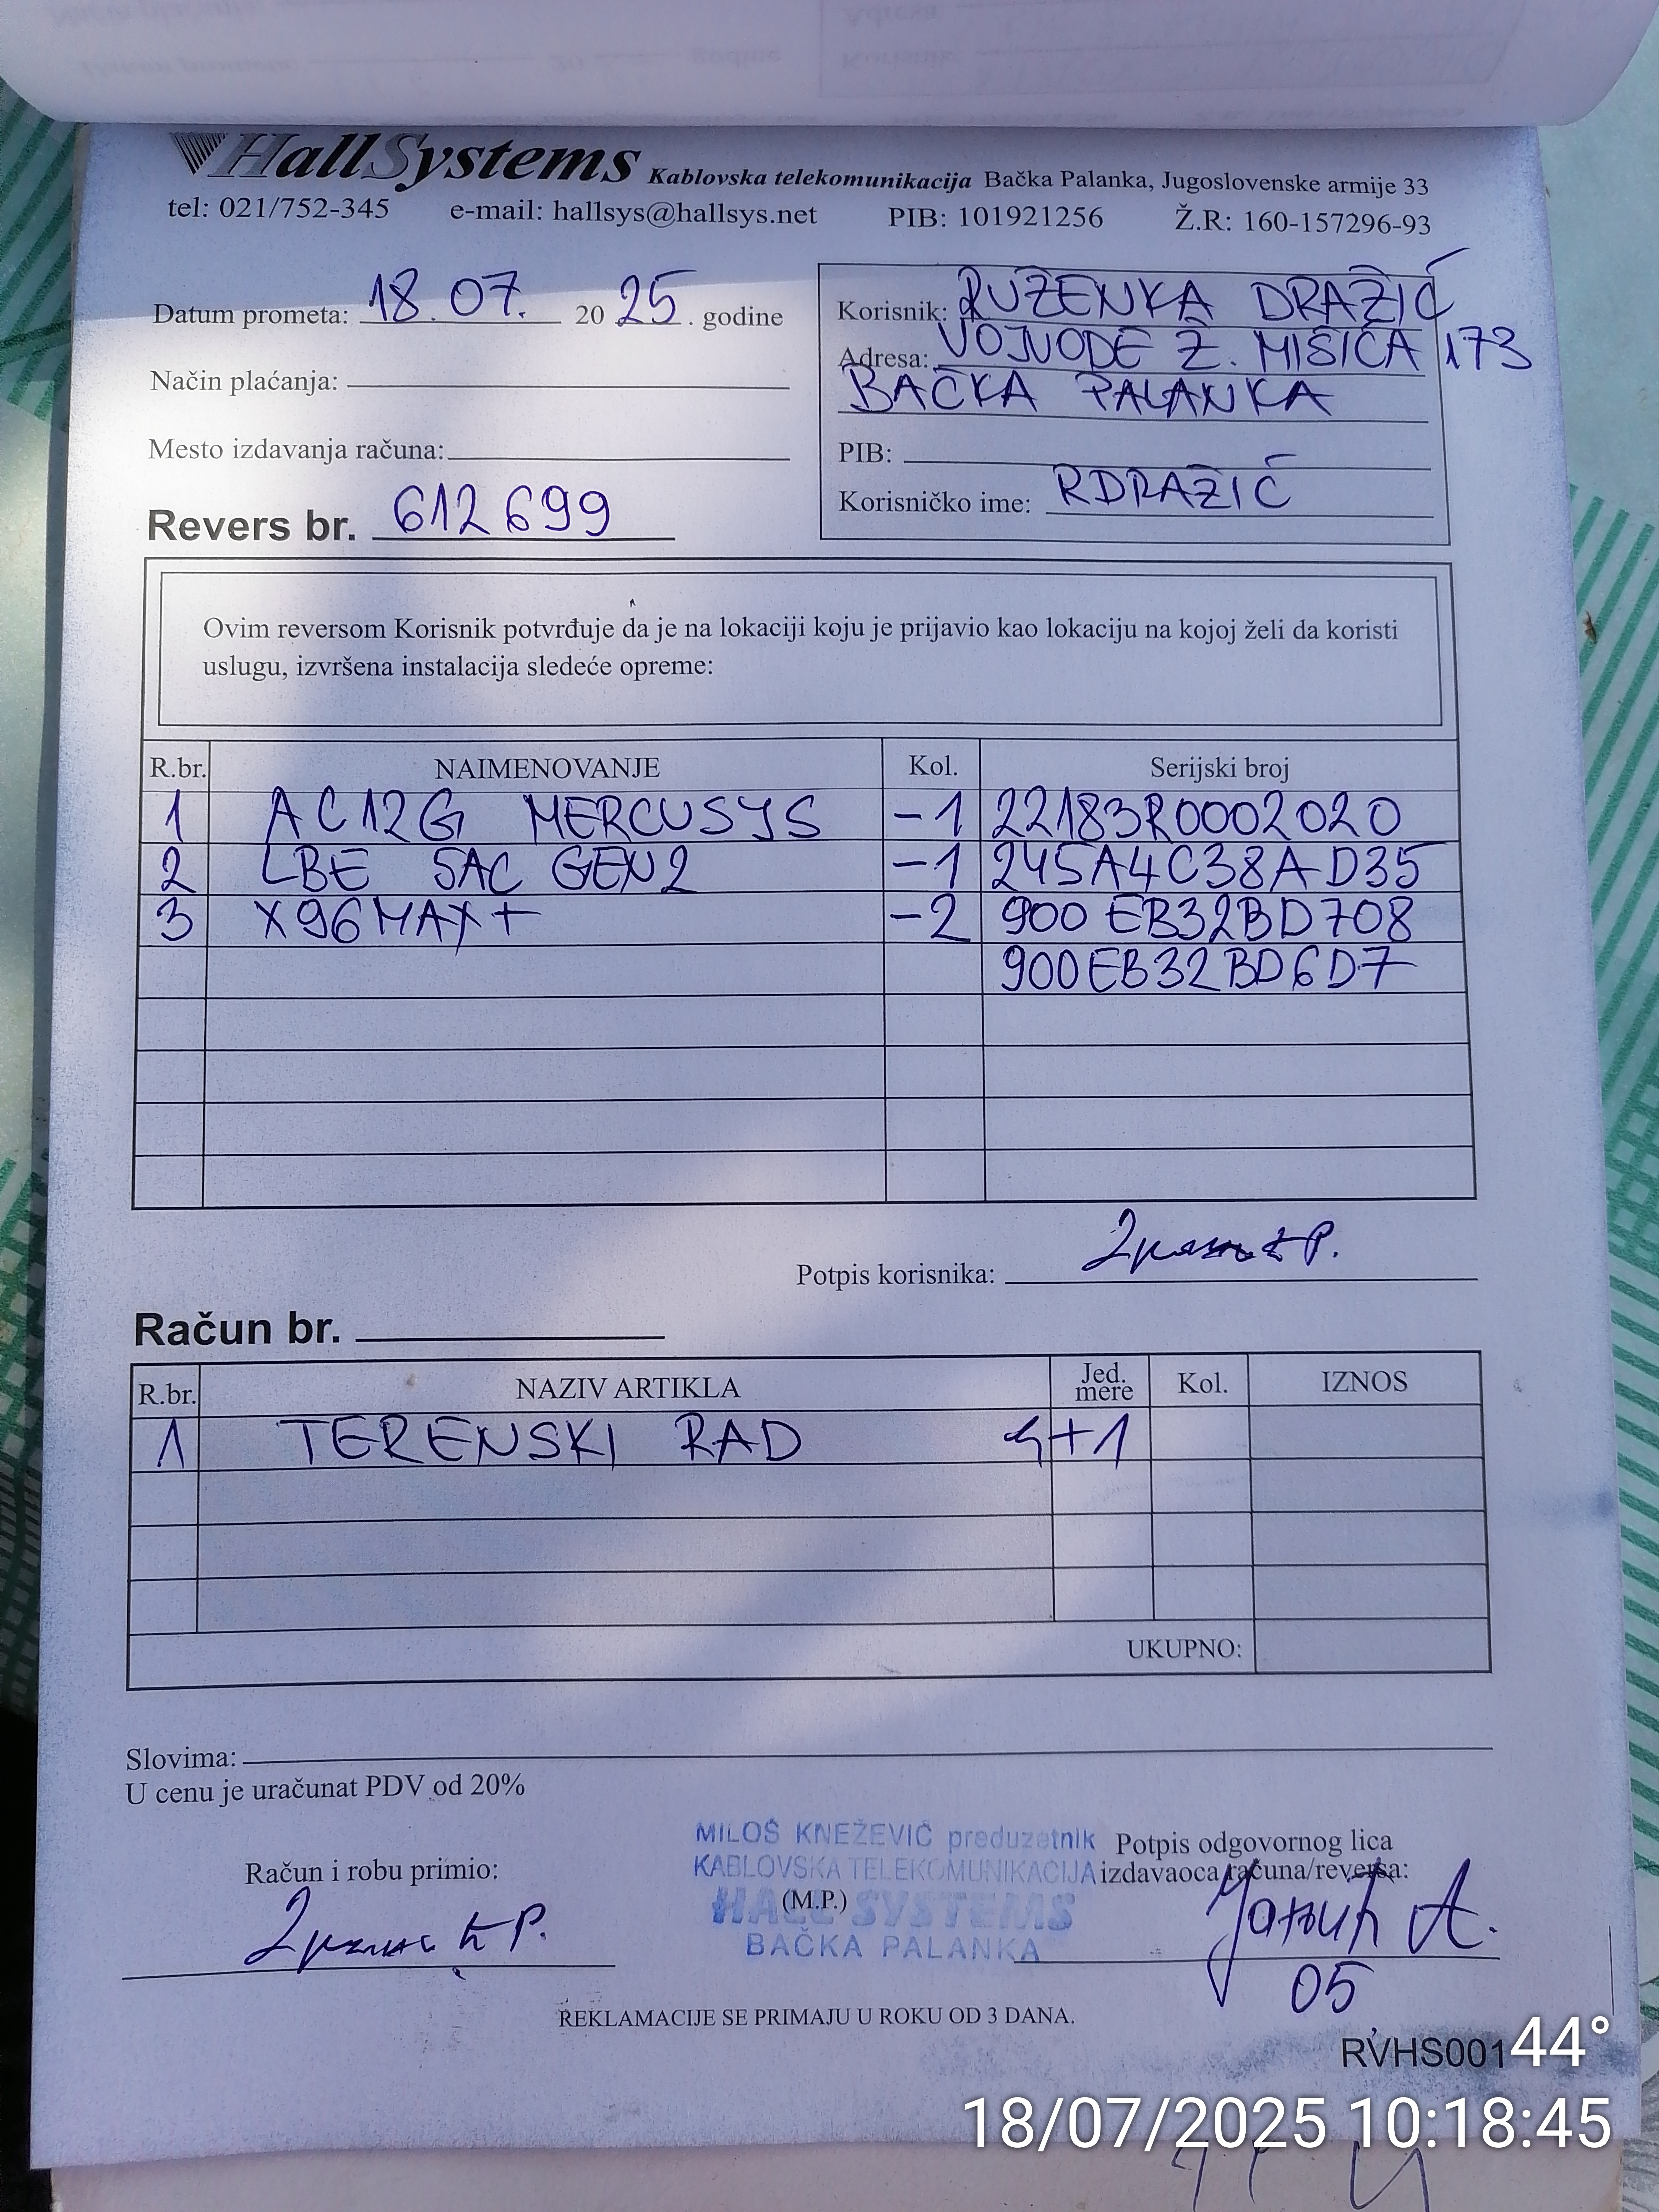 HallSystems Kablovska telekomunikacija Bačka Palanka, Jugoslovenske armije 33
tel: 021/752-345 e-mail: hallsys@hallsys.net PIB: 101921256 Ž.R: 160-157296-93
Datum prometa: 18.07. 2025. godine
Način plaćanja:
Mesto izdavanja računa:
Revers br. 612699
Korisnik: RUŽENKA DRAŽIĆ
Adresa: VOJVODE Ž. MIŠIĆA 173
BAČKA PALANKA
PIB:
Korisničko ime: RDRAŽIĆ
Ovim reversom Korisnik potvrđuje da je na lokaciji koju je prijavio kao lokaciju na kojoj želi da koristi
uslugu, izvršena instalacija sledeće opreme:
R.br. NAIMENOVANJE Kol. Serijski broj
1 AC12G MERCUSYS -1 22183R0002020
2 LBE 5AC GEN2 -1 245A4C38AD35
3 X96MAX+ -2 900EB32BD708
900EB32BD6D7
Potpis korisnika:
Račun br.
R.br. NAZIV ARTIKLA Jed. mere Kol. IZNOS
1 TERENSKI RAD 4+1
UKUPNO:
Slovima:
U cenu je uračunat PDV od 20%
Račun i robu primio:
MILOŠ KNEŽEVIĆ preduzetnik
KABLOVSKA TELEKOMUNIKACIJA
(M.P.)
HALL SYSTEMS
BAČKA PALANKA
Potpis odgovornog lica
izdavaoca računa/reversa:
05
REKLAMACIJE SE PRIMAJU U ROKU OD 3 DANA.
RVHS001
44°
18/07/2025 10:18:45